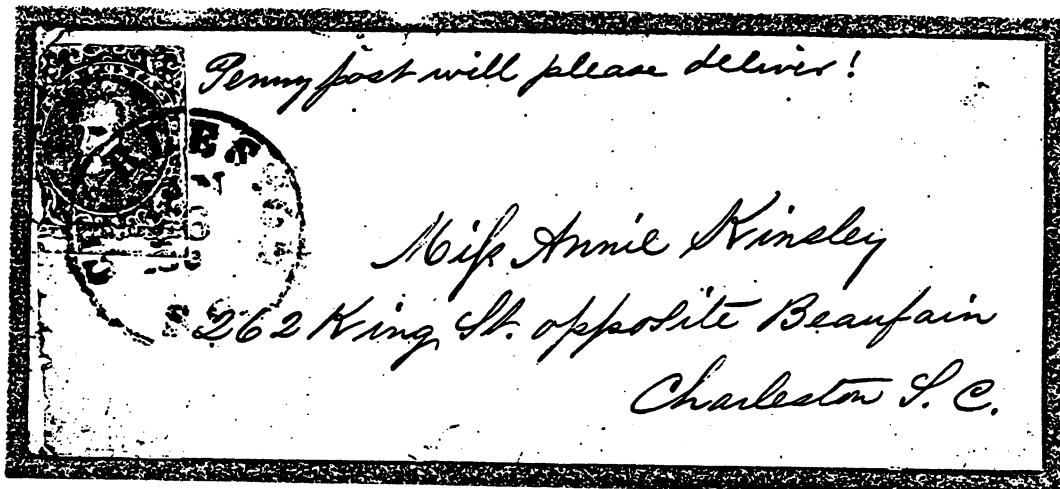 Penny post will please deliver!
Miss Annie Kinsley
262 King St. opposite Beaufain
Charleston S. C.